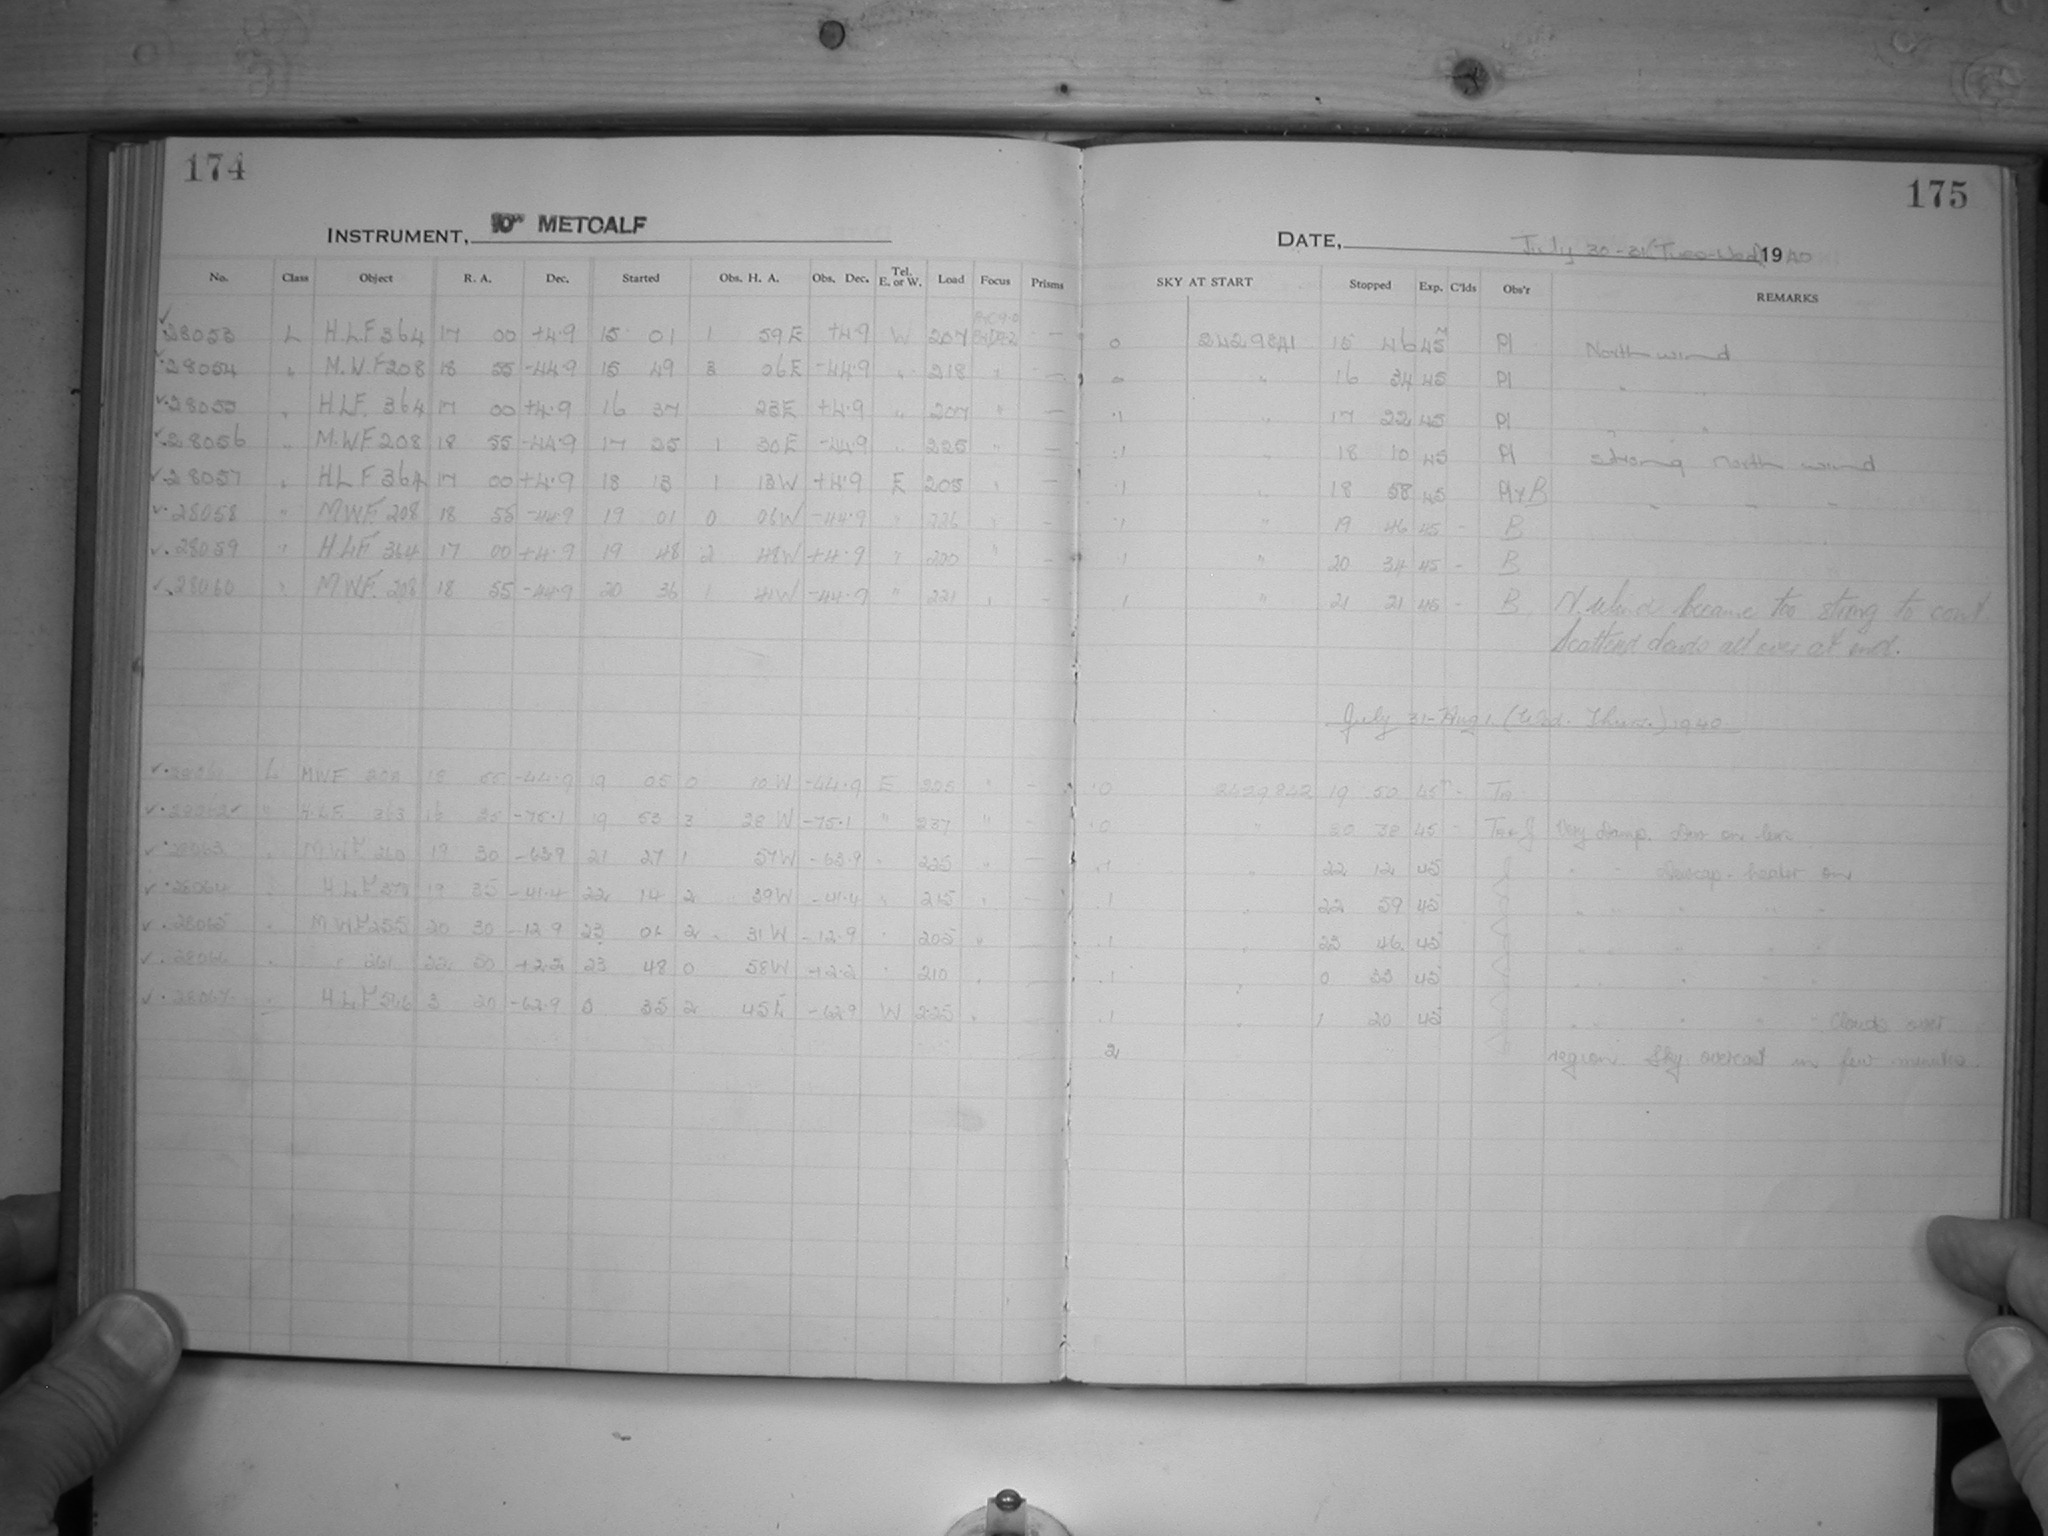 174
INSTRUMENT, 10" METCALF
No. Class Object R. A. Dec. Started Obs. H. A. Obs. Dec. Tel. E. or W. Load Focus Prisms
28053 L H.L.F 364 17 00 +4.9 15 01 1 59E +4.9 W 207 —
28054 " M.W.F 208 18 55 -44.9 15 49 3 06E -44.9 " 218 " —
28055 " H.L.F. 364 17 00 +4.9 16 37 23E +4.9 " 207 " —
28056 " M.W.F 208 18 55 -44.9 17 25 1 30E -44.9 " 225 " —
28057 " H.L.F 364 17 00 +4.9 18 13 1 13W +4.9 E 205 " —
28058 " M.W.F. 208 18 55 -44.9 19 01 0 06W -44.9 " 226 " —
28059 " H.L.F 364 17 00 +4.9 19 48 2 48W +4.9 " 220 "
28060 " M.W.F. 208 18 55 -44.9 20 36 1 41W -44.9 " 221 " —
28061 L M.W.F 208 18 55 -44.9 19 05 0 10W -44.9 E 225 " —
28062 " H.L.F 363 16 25 -75.1 19 53 3 28W -75.1 " 237 " —
28063 " M.W.F 260 19 30 -63.9 21 27 1 57W -63.9 " 225 " —
28064 " H.L.F 19 35 -41.4 22 14 2 39W -41.4 " 215 " —
28065 " M.W.F 255 20 30 -12.9 23 01 2 31W -12.9 " 205 "
28066 " " 261 22 50 +2.2 23 48 0 58W +2.2 " 210 "
28067 " H.L.F 3 20 -62.9 0 35 2 45E -62.9 W 225 "
175
DATE, July 30-31 (Tues-Wed) 1940
SKY AT START Stopped Exp. C'lds Obs'r REMARKS
0 2429841 15 46 45m Pl North wind
0 " 16 34 45 Pl " "
.1 " 17 22 45 Pl " "
.1 " 18 10 45 Pl Strong North wind
.1 " 18 58 45 Pl & B " " "
.1 " 19 46 45 - B
.1 " 20 34 45 - B
.1 " 21 21 45 - B N. Wind became too strong to cont.
Scattered clouds all over at end.
July 31-Aug 1. (Wed. Thurs.) 1940
.0 2429842 19 50 45m -
.0 " 20 38 45 - Very damp. Dew on lens
.1 " 22 12 45 " " Dewcap heater on
.1 " 22 59 45 " " " " "
.1 " 23 46 45 " " " " "
.1 " 0 33 45 " " " " "
.1 " 1 20 45 " " " " " Clouds over
2 region Sky overcast in few minutes.